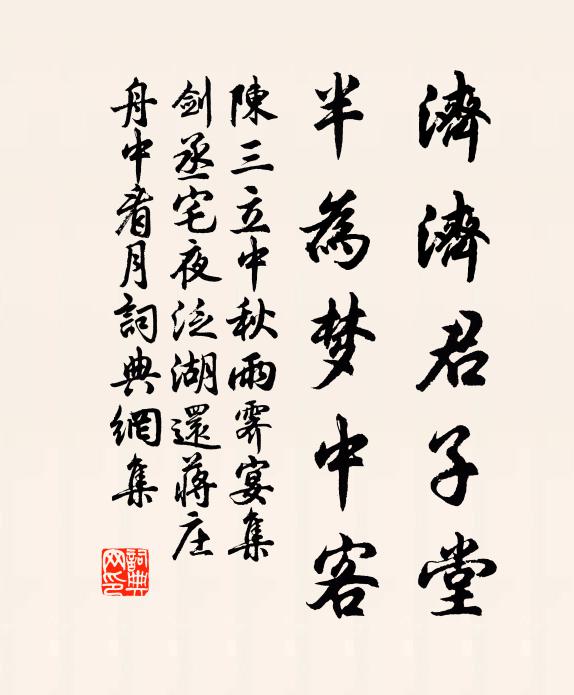 濟濟君子堂
半為梦中客
陳三立中秋雨霽宴集
劍丞宅夜泛湖還蔣庄
舟中看月詞典網集
詞典
网印